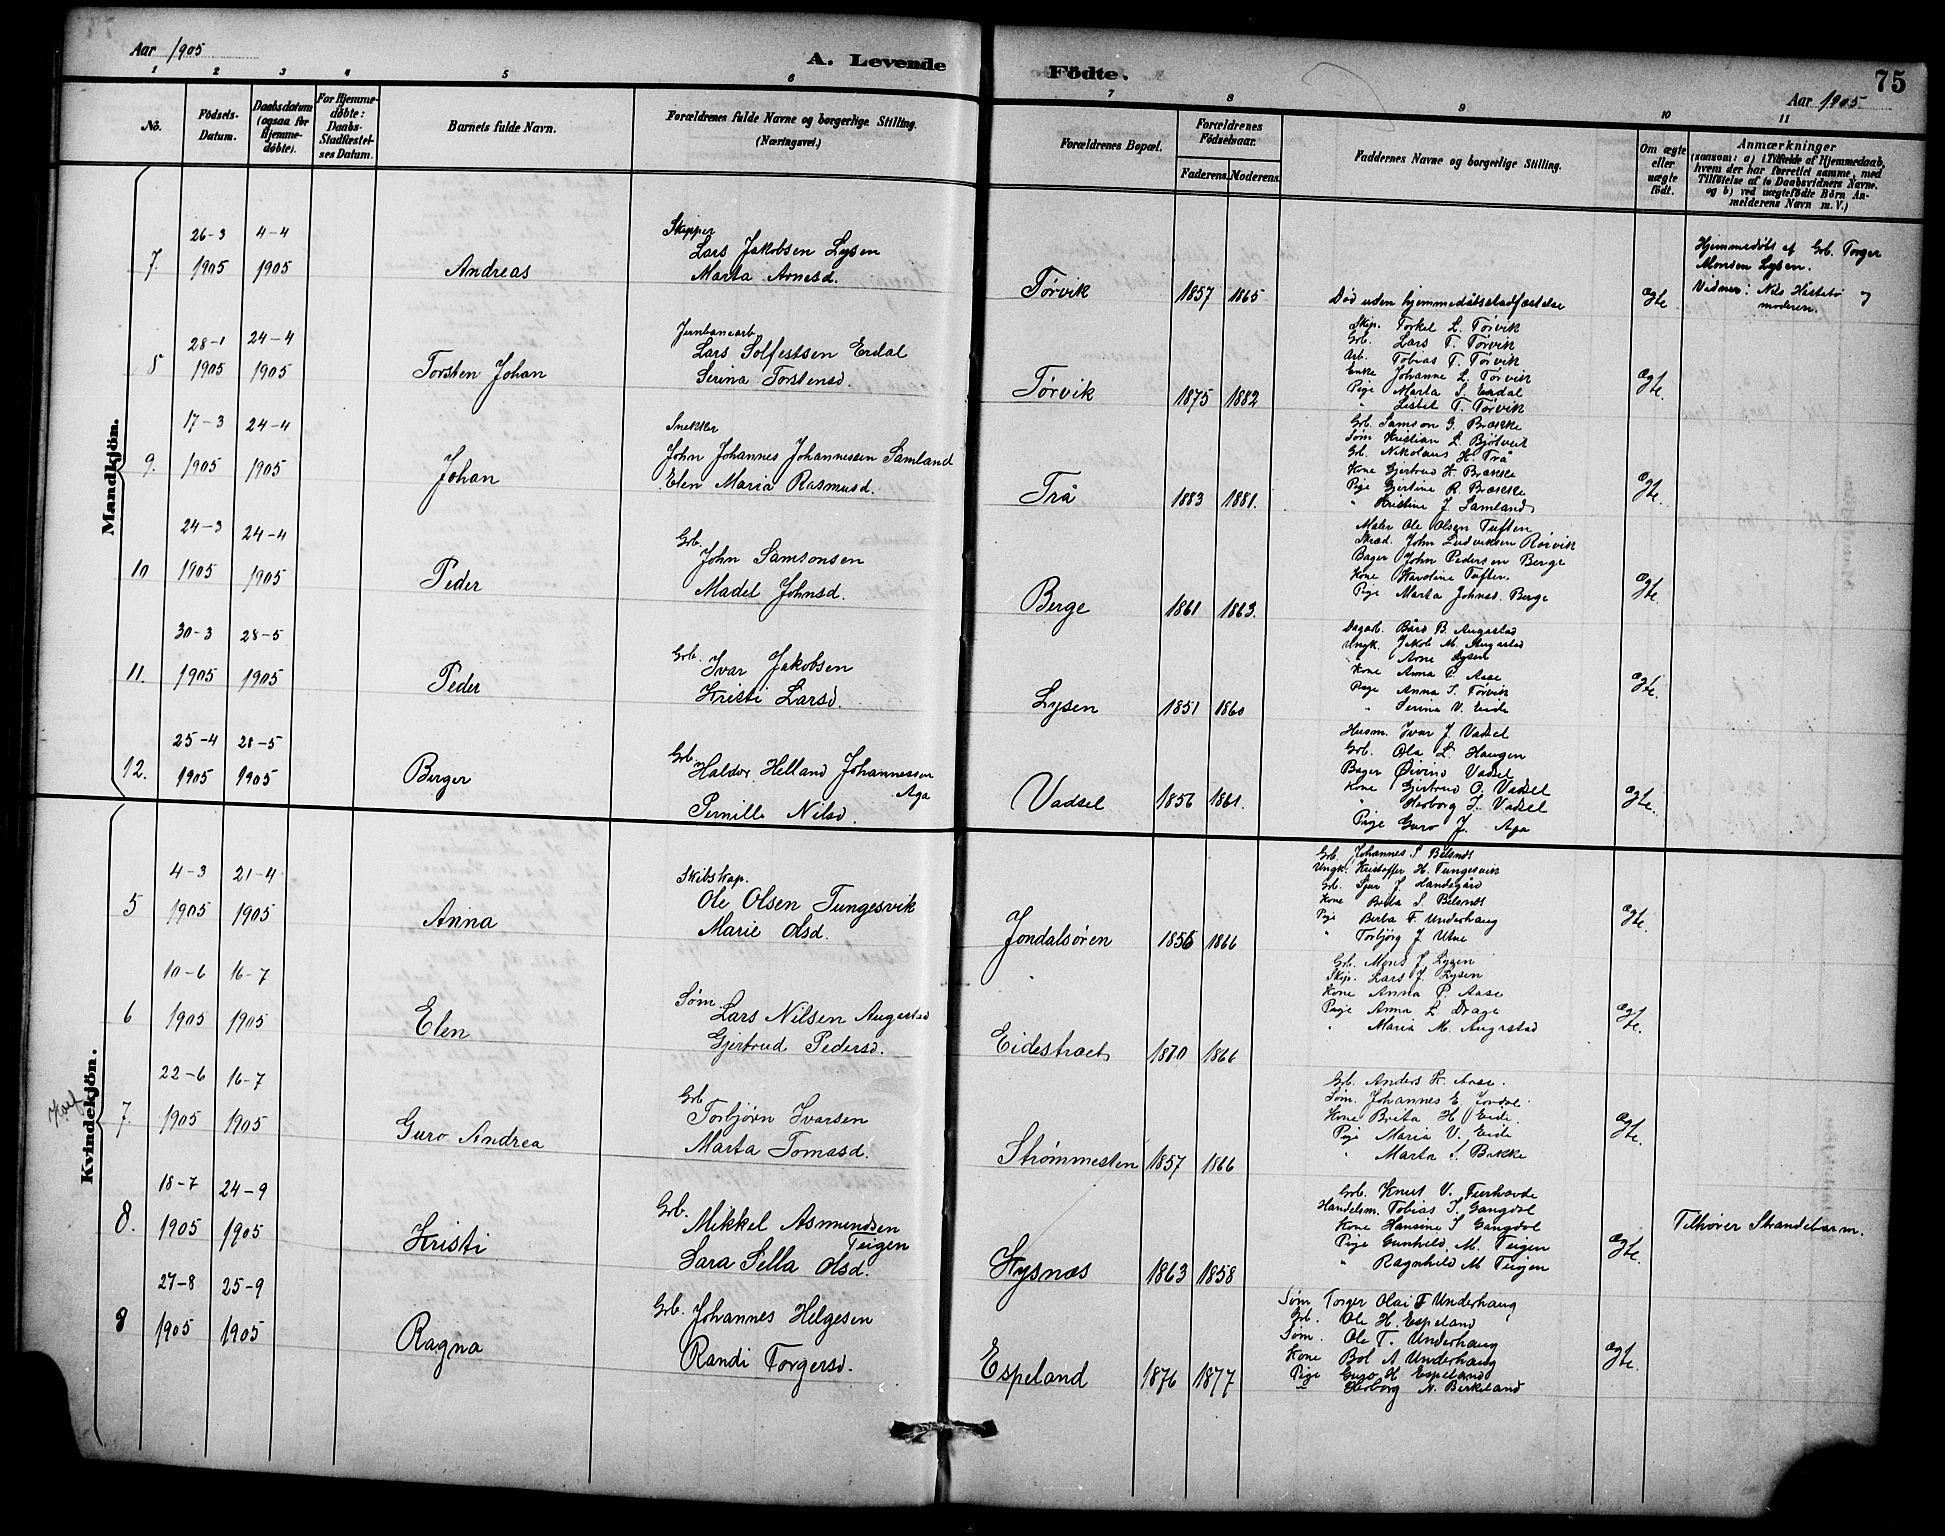 Aar 1905
A. Levende Födte.
75
Aar 1905
1 2 3 4 5 6 7 8 9 10 11
No.
Födsels-Datum.
Daabsdatum (ogsaa for Hjemme-döbte).
For Hjemme-döbte: Daabs-Stadfæstel-ses Datum.
Barnets fulde Navn.
Forældrenes fulde Navne og borgerlige Stilling. (Næringsvei.)
Forældrenes Bopæl.
Forældrenes Födselsaar.
Faderens. Moderens.
Faddernes Navne og borgerlige Stilling.
Om ægte eller uægte födt.
Anmærkninger
(saasom: a) i Tilfælde af Hjemmedaab, hvem der har forrettet samme, med Tilföielse af to Daabsvidners Navne, og b) ved uægtefödte Börn An-melderens Navn m. V.)
Mandkjön.
7. 26-3 1905 4-4 1905 Andreas
Skipper
Lars Jakobsen Lysen
Marta Arnesd.
Tørvik 1857 1865
Død uden hjemmedåbsstadfæstelse
Ægte
Hjemmedøbt af Grb. Torger
Monsen Lysen.
Vidner: Nils Håstabø og
moderen.
8 28-1 1905 24-4 1905 Torsten Johan
Jernbanearb
Lars Solfestsen Erdal
Serina Torstensd.
Tørvik 1875 1882
Skip. Torkel L. Tørvik
Grb. Lars T. Tørvik
Arb. Tobias T. Tørvik
Enke Johanne L. Tørvik
Pige Marta S. Erdal
" Lisbet T. Tørvik
Ægte.
9. 17-3 1905 24-4 1905 Johan
Snekker
John Johannes Johannessen Samland
Elen Maria Rasmusd.
Trå 1883 1881.
Grb. Samson G. Brække
Søm Kristian L. Bjotveit
Grb. Nikolaus H. Trå
Kone Gjertrud H. Brække
Pige Gjertine R. Brække
" Kristine J. Samland
Ægte.
10 24-3 1905 24-4 1905 Peder
Grb.
John Samsonsen
Madel Johnsd.
Berge 1861 1863.
Maler Ole Olsen Tuften
Skræd. John Ludviksen Rørvik
Bager John Pedersen Berge
Kone Karoline Tuften.
Pige Marta Johnsd. Berge
Ægte.
11. 30-3 1905 28-5 1905 Peder
Grb. Ivar Jakobsen
Kristi Larsd.
Lysen 1851 1860
Dagarb. Bård B. Augastad
Ungk. Jakob M. Augastad
" Arne Lysen
Kone Anna P. Aase
Pige Anna S. Tørvik
" Serina V. Eide
Ægte.
12. 25-4 1905 28-5 1905 Berger
Grb. Haldor Helland Johannessen
Aga
Pernille Nilsd.
Vadsel 1856 1861.
Husm. Ivar J. Vadsel
Grb. Ola L. Haugen
Bager Øivind Vadsel
Kone Gjertrud O. Vadsel
" Herborg I. Vadsel
Pige Guro J. Aga
Ægte.
Kvindekjön.
5 4-3 1905 21-4 1905 Anna
Skibskap.
Ole Olsen Tungesvik
Marie Olsd.
Jondalsøren 1856 1866
Grb. Johannes S Belsnes
Ungk. Kristoffer H. Tungesvik
Grb. Sjur J. Handegård
Kone Brita S. Belsnes
Pige Berta T. Underhaug
" Torbjørg J Utne
Ægte.
6 10-6 1905 16-7 1905 Elen
Søm.
Lars Nilsen Augastad
Gjertrud Pedersd.
Eidestræt 1870 1866
Grb. Mons J. Lysen
Skip. Lars J. Lysen
Kone Anna P. Aase
Pige Anna L. Drage
" Maria M. Augastad
Ægte.
7. 22-6 1905 16-7 1905 Guro Andrea
Grb
Torbjørn Ivarsen
Marta Tomasd.
Strømmesten 1857 1866
Grb. Anders K. Aase.
Søm. Johannes E.
Kone Brita H. Eide.
Pige Maria V. Eide
" Marta S. Bakke
Ægte.
8. 18-7 1905 24-9 1905 Kristi
Grb.
Mikkel Asmundsen
Teigen
Sara Sella Olsd.
Kysnæs 1863 1858
Grb. Knut V. Furhovde
Handelsm. Tobias I. Gangdal
Kone Hansine I Gangdal
Pige Gunhild M. Teigen
" Ragnhild M Teigen
Ægte.
Tilhører Strandebarm.
9 27-8 1905 25-9 1905 Ragna
Grb. Johannes Helgesen
Randi Torgersd.
Espeland 1876 1877
Søm Torger Olai T Underhaug
Grb. Ole H. Espeland
Søm. Ole T. Underhaug
Kone Bol A Underhaug
Pige Guro H Espeland
" Herborg N. Birkeland
Ægte.